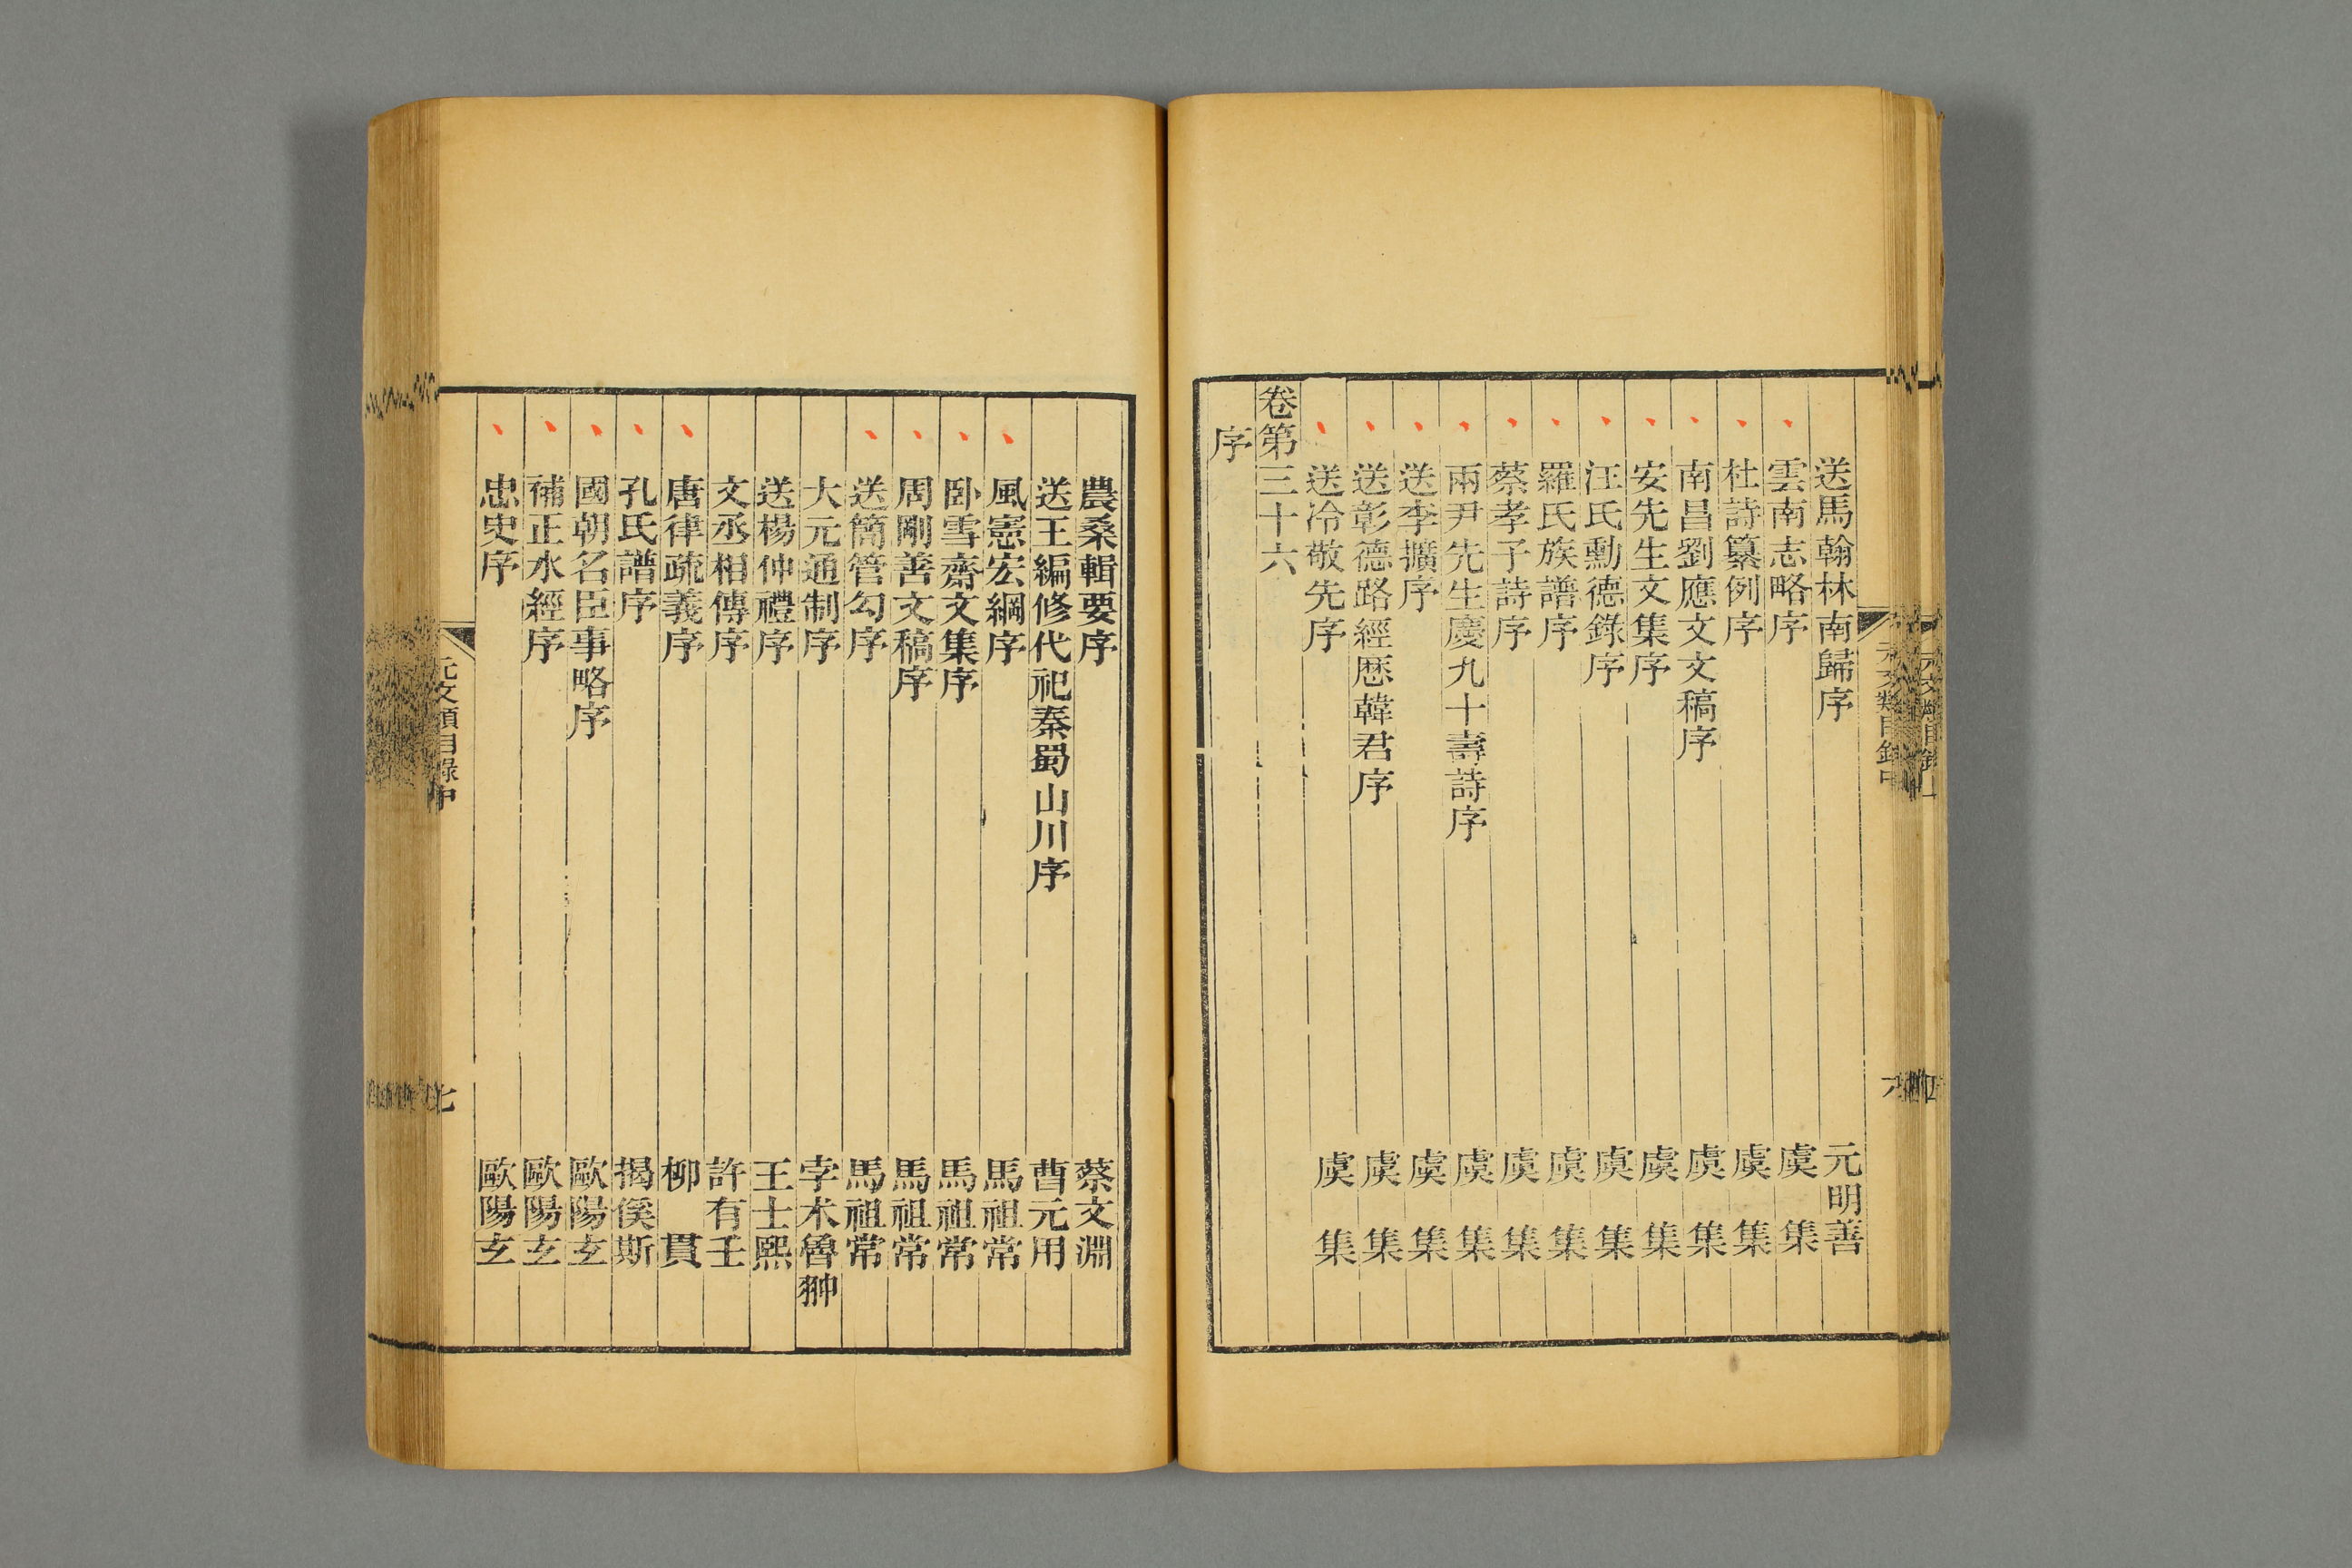 送馬翰林南歸序 元明善
雲南志略序 虞集
杜詩纂例序 虞集
南昌劉應文文稿序 虞集
安先生文集序 虞集
汪氏勳德錄序 虞集
羅氏族譜序 虞集
蔡孝子詩序 虞集
兩尹先生慶九十壽詩序 虞集
送李擴序 虞集
送彰德路經歷韓君序 虞集
送冷敬先序 虞集
卷第三十六
序
農桑輯要序 蔡文淵
送王編修代祀秦蜀山川序 曹元用
風憲宏綱序 馬祖常
臥雪齋文集序 馬祖常
周剛善文稿序 馬祖常
送簡管勾序 馬祖常
大元通制序 孛术魯翀
送楊仲禮序 王士熙
文丞相傳序 許有壬
唐律疏義序 柳貫
孔氏譜序 揭傒斯
國朝名臣事略序 歐陽玄
補正水經序 歐陽玄
忠史序 歐陽玄
元文類目錄中
七